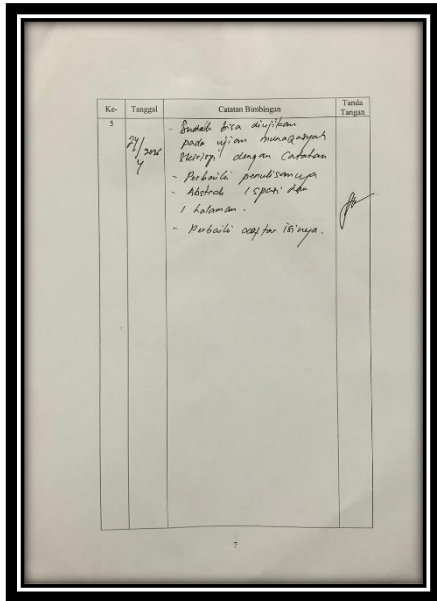 Ke- Tanggal Catatan Bimbingan Tanda Tangan
5
24/4
- Sudah bisa diujikan
pada ujian munaqasyah
Skripsi dengan Catatan
- Perbaiki penulisannya
- Abstrak 1 spasi dan
1 halaman.
- Perbaiki daftar isinya.
7